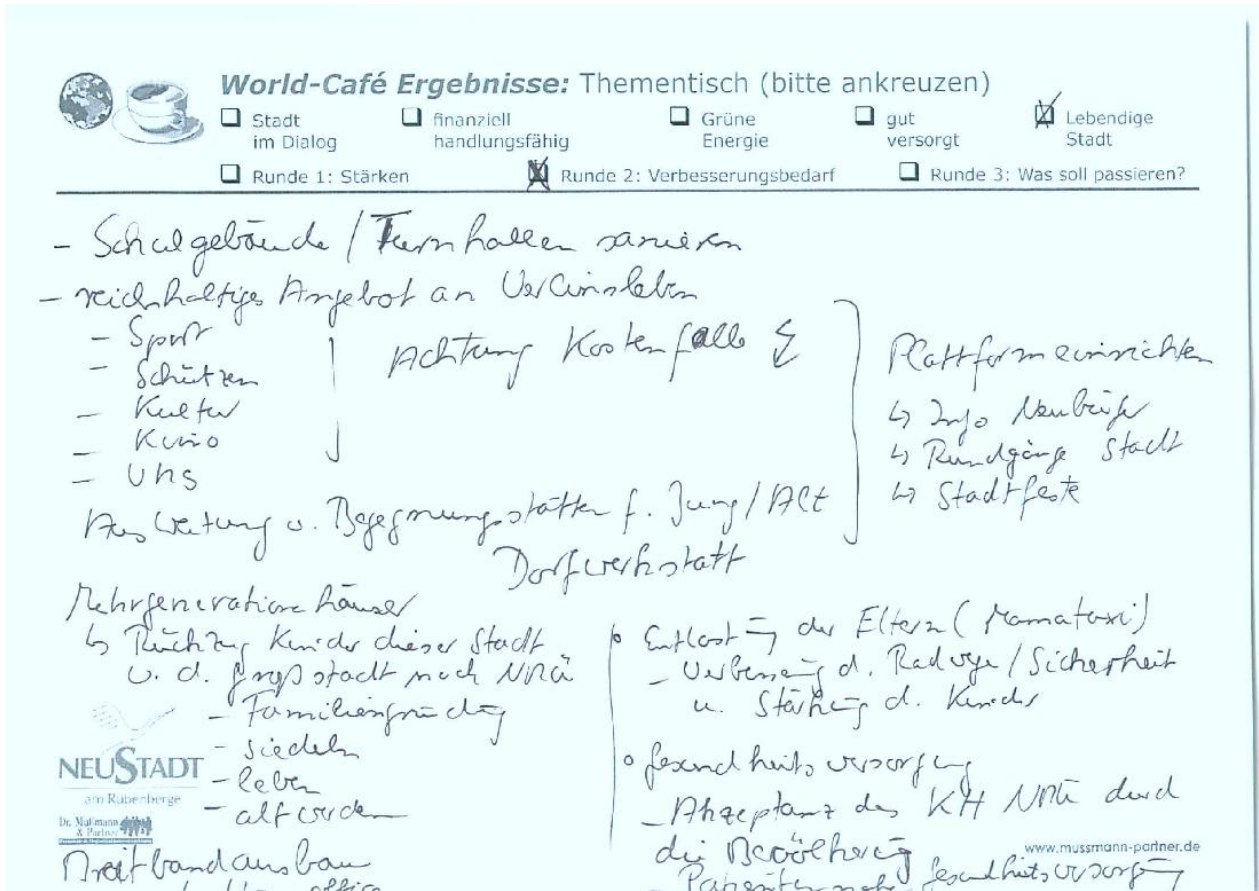 World-Café Ergebnisse: Thementisch (bitte ankreuzen)
Stadt im Dialog
finanziell handlungsfähig
Grüne Energie
gut versorgt
Lebendige Stadt
Runde 1: Stärken
Runde 2: Verbesserungsbedarf
Runde 3: Was soll passieren?
- Schulgebäude / Turnhallen sanieren
- reichhaltiges Angebot an Vereinsleben
- Sport
- Schützen
- Kultur
- Kino
- VHS
Achtung Kostenfalle
Plattform einrichten
↳ Info Neubürger
↳ Rundgänge Stadt
↳ Stadtfeste
Ausweitung v. Begegnungsstätten f. Jung / Alt
Dorfwerkstatt
Mehrgenerationenhäuser
↳ Rückzug Kinder dieser Stadt
v. d. Großstadt nach NRÜ
- Familiengründung
- siedeln
- leben
- alt werden
Breitbandausbau
office
• Entlastung der Eltern (Mamataxi)
- Verbesserung d. Radwege / Sicherheit
u. Stärkung d. Kinder
• Gesundheitsversorgung
- Akzeptanz des KH NRÜ durch
die Bevölkerung
Gesundheitsversorgung
NEUSTADT
am Rübenberge
Dr. Mußmann
& Partner
www.mussmann-partner.de